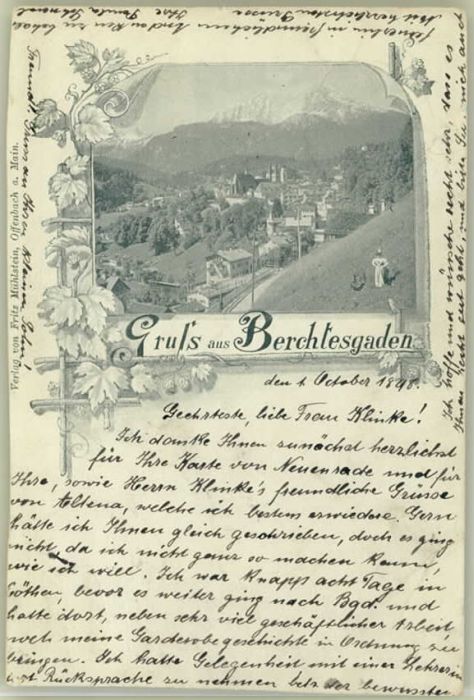 Gruss aus Berchtesgaden
den 1. October 1898.
Geehrteste, liebe Frau Klinke!
Ich danke Ihnen zunächst herzlichst
für Ihre Karte von Neuenrade und für
Ihre, sowie Herrn Klinke's freundliche Grüsse
von Altena, welche ich bestens erwiedere. Gern
hätte ich Ihnen gleich geschrieben, doch es ging
nicht, da ich nicht ganz so machen kann,
wie ich will. Ich war knapp acht Tage in
Cöthen, bevor es weiter ging nach Bgd. und
hatte dort, neben sehr viel geschäftlicher Arbeit,
noch meine Garderobegeschichte in Ordnung zu
bringen. Ich hatte Gelegenheit mit einer Lehrerin
Rücksprache zu nehmen der bewussten
Ich hoffe und wünsche recht sehr, dass es
Ihnen recht gut geht und bitte Sie, mich auch
fernerhin in freundlichem Andenken zu behal
Mit herzlichsten Grüssen Ihre
Ihren kleinen Sohn!
Verlag von Fritz Mühlstein, Offenbach a. Main.